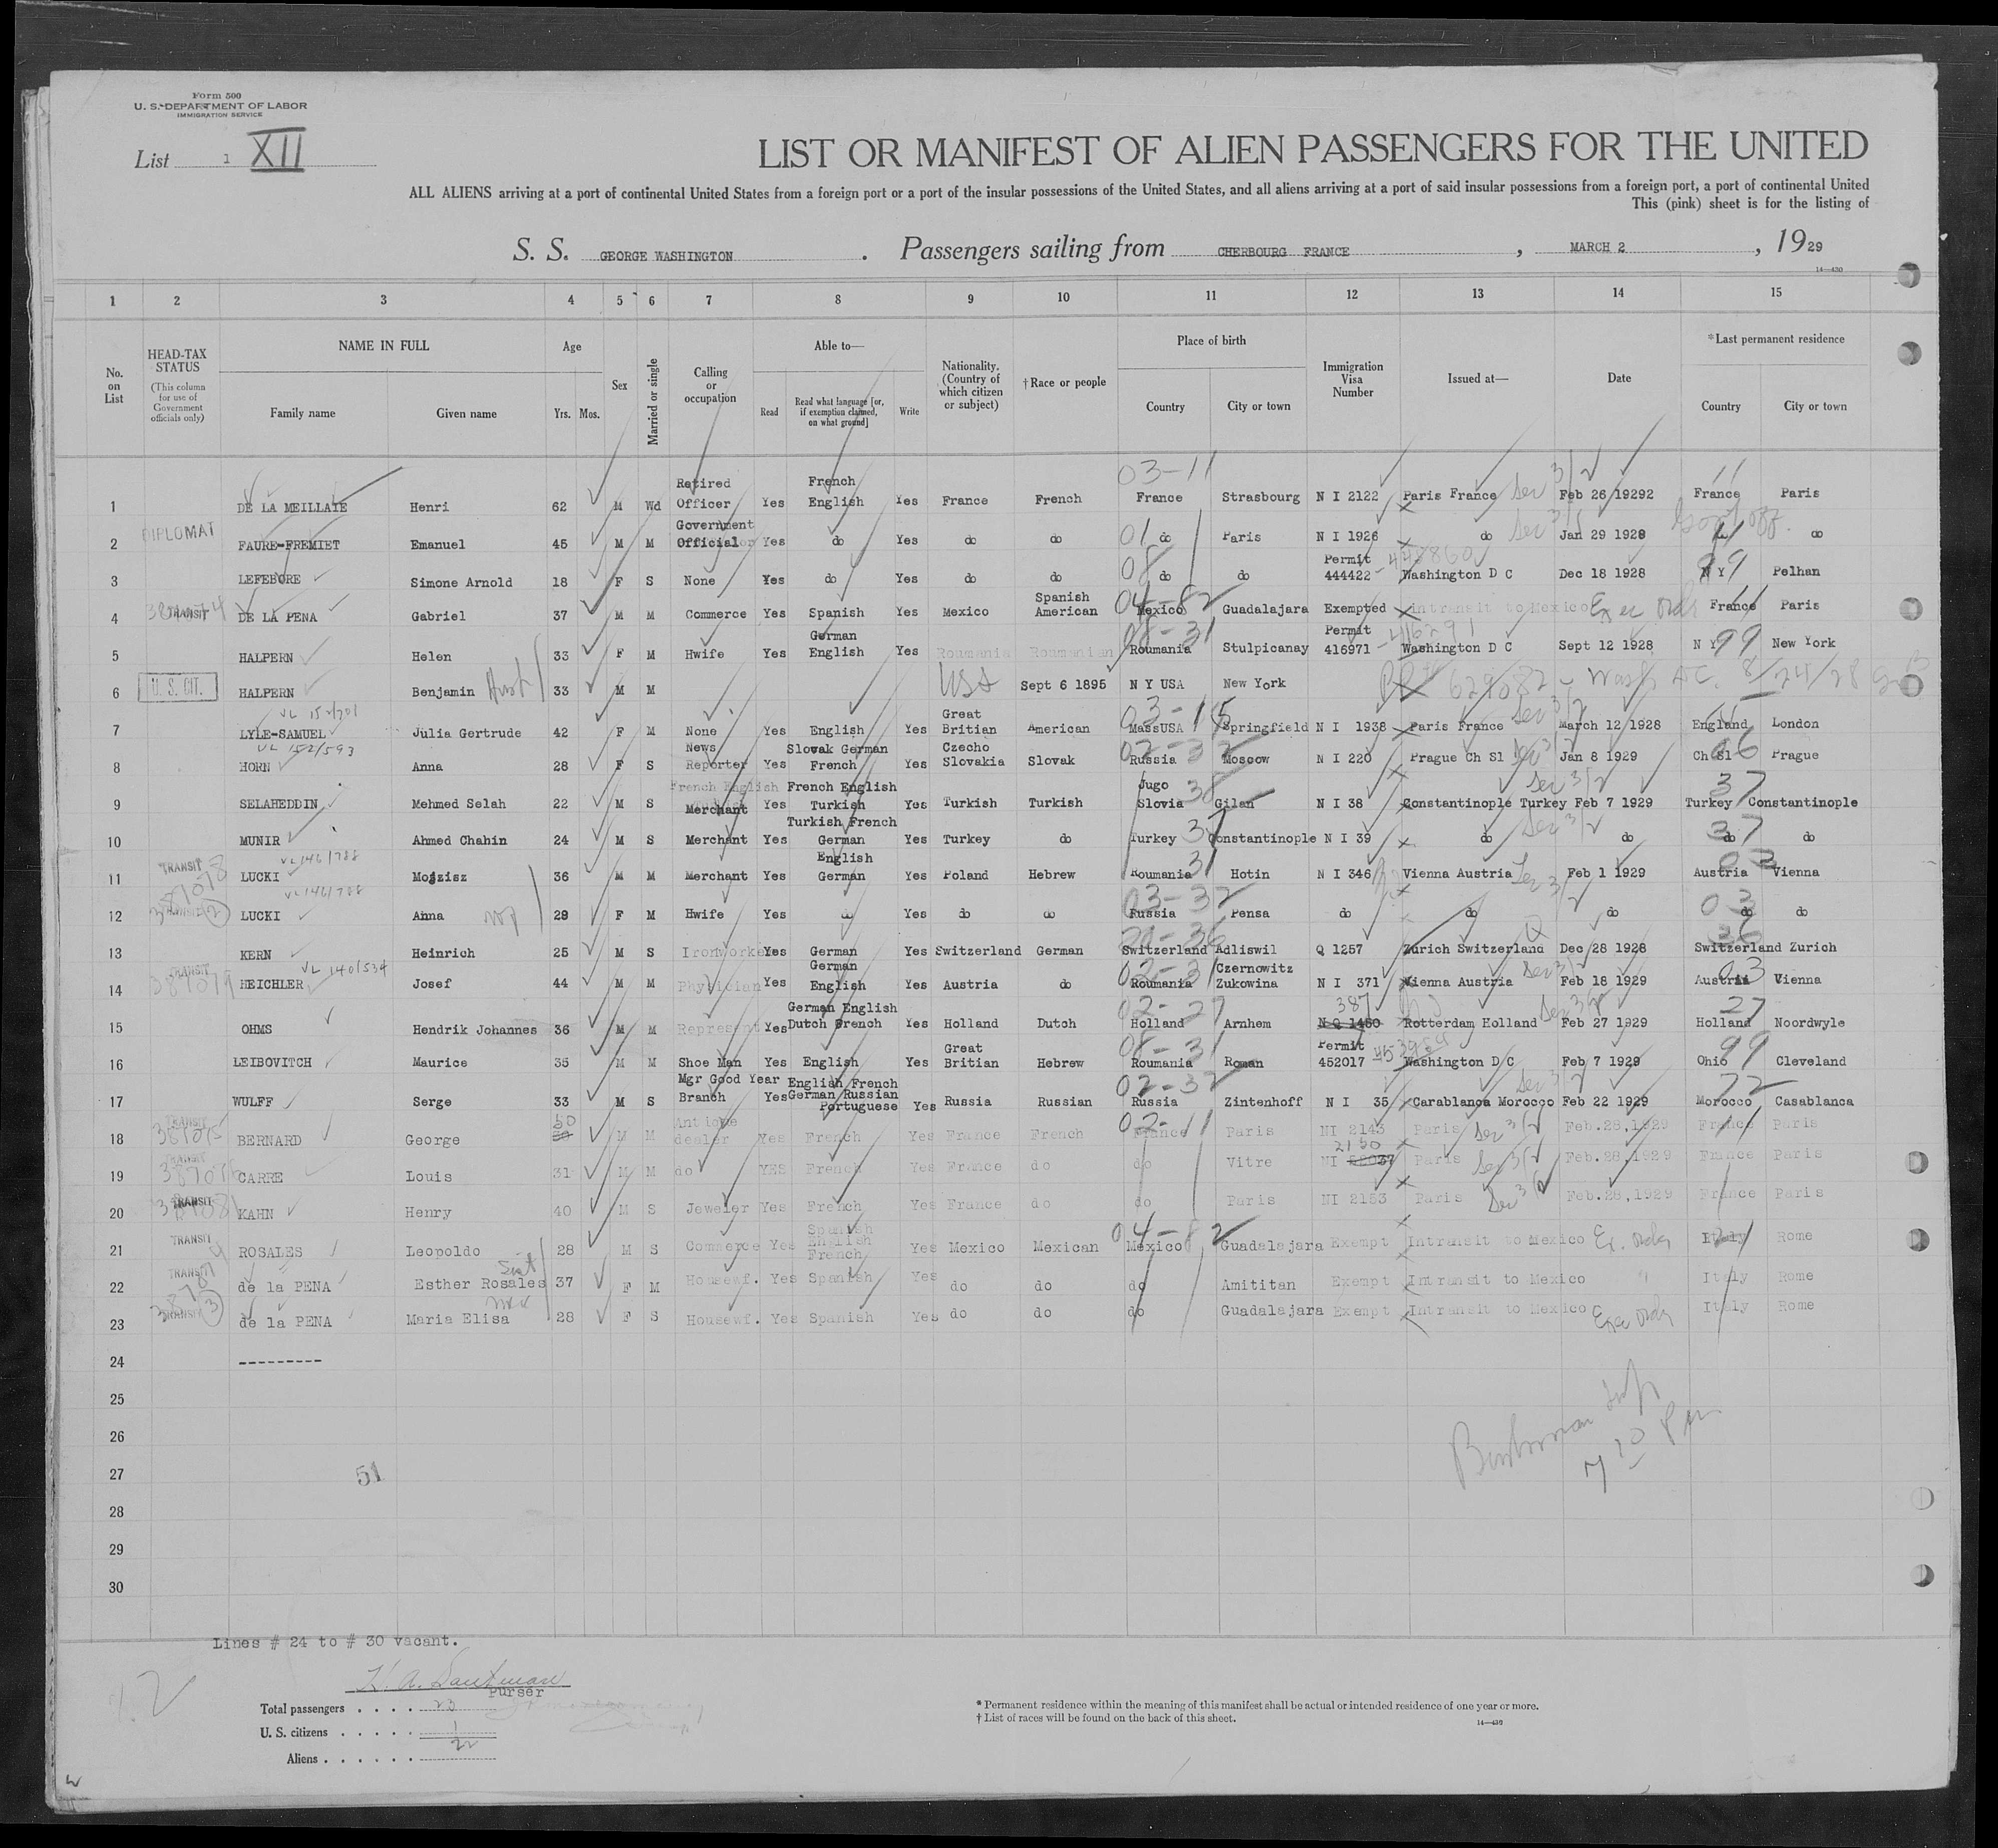 Form 500
U. S. DEPARTMENT OF LABOR
IMMIGRATION SERVICE
List 1 XII
LIST OR MANIFEST OF ALIEN PASSENGERS FOR THE UNITED
ALL ALIENS arriving at a port of continental United States from a foreign port or a port of the insular possessions of the United States, and all aliens arriving at a port of said insular possessions from a foreign port, a port of continental United
This (pink) sheet is for the listing of
S. S. GEORGE WASHINGTON . Passengers sailing from CHERBOURG FRANCE , MARCH 2 , 1929
14—430
1 2 3 4 5 6 7 8 9 10 11 12 13 14 15
No. on List
HEAD-TAX STATUS (This column for use of Government officials only)
NAME IN FULL Family name Given name
Age Yrs. Mos.
Sex
Married or single
Calling or occupation
Able to— Read Read what language [or, if exemption claimed, on what ground] Write
Nationality. (Country of which citizen or subject)
†Race or people
Place of birth Country City or town
Immigration Visa Number
Issued at—
Date
*Last permanent residence Country City or town
03-11 11
1 DE LA MEILLAIE Henri 62 M Wd Retired Officer Yes French English Yes France French France Strasbourg N I 2122 Paris France Feb 26 19292 France Paris
2 DIPLOMAT FAURE-FREMIET Emanuel 45 M M Government Official Yes do Yes do do 01 do Paris N I 1926 do Jan 29 1929 do
3 LEFEBORE Simone Arnold 18 F S None Yes do Yes do do 08 do do Permit 444422 Washington D C Dec 18 1928 N Y 99 Pelhan
4 TRANSIT DE LA PENA Gabriel 37 M M Commerce Yes Spanish Yes Mexico Spanish American 04-82 Mexico Guadalajara Exempted intransit to Mexico France Paris
5 HALPERN Helen 33 F M Hwife Yes German English Yes Roumania Roumanian 08-31 Roumania Stulpicanay Permit 416971 Washington D C Sept 12 1928 N Y 99 New York
6 U. S. CIT. HALPERN Benjamin 33 M M USA Sept 6 1895 N Y USA New York 629082 - Wash DC. 8/24/28
VL 152/701
7 LYLE-SAMUEL Julia Gertrude 42 F M None Yes English Yes Great Britian American 03-15 MassUSA Springfield N I 1938 Paris France March 12 1928 England London
VL 152/593
8 HORN Anna 28 F S News Reporter Yes Slovak German French Yes Czecho Slovakia Slovak 02-32 Russia Moscow N I 220 Prague Ch Sl Jan 8 1929 Ch Sl 06 Prague
9 SELAHEDDIN Mehmed Selah 22 M S French English Merchant Yes French English Turkish Yes Turkish Turkish Jugo Slovia 38 Gilan N I 38 Constantinople Turkey Feb 7 1929 Turkey 37 Constantinople
10 MUNIR Ahmed Chahin 24 M S Merchant Yes Turkish French German Yes Turkey do Turkey 37 Constantinople N I 39 do do do 37 do
VL 146/788
11 TRANSIT LUCKI Mojzisz 36 M M Merchant Yes English German Yes Poland Hebrew Roumania 31 Hotin N I 346 Vienna Austria Feb 1 1929 Austria 03 Vienna
VL 146/788
12 LUCKI Anna 29 F M Hwife Yes do Yes do do 03-32 Russia Pensa do do do 03 do do
13 KERN Heinrich 25 M S Ironworker Yes German Yes Switzerland German Switzerland Adliswil Q 1257 Zurich Switzerland Dec 28 1928 Switzerland 36 Zurich
VL 140/534
14 TRANSIT 387079 HEICHLER Josef 44 M M Physician Yes German English Yes Austria do 02-31 Roumania Czernowitz Zukowina N I 371 Vienna Austria Feb 18 1929 Austria 03 Vienna
15 OHMS Hendrik Johannes 36 M M Represent Yes German English Dutch French Yes Holland Dutch 02-27 Holland Arnhem 387 N Q 1460 Rotterdam Holland Feb 27 1929 Holland 27 Noordwyle
16 LEIBOVITCH Maurice 35 M M Shoe Man Yes English Yes Great Britian Hebrew 08-31 Roumania Roman Permit 452017 Washington D C Feb 7 1929 Ohio 99 Cleveland
17 WULFF Serge 33 M S Mgr Good Year Branch Yes English French German Russian Portuguese Yes Russia Russian 02-32 Russia Zintenhoff N I 35 Carablanca Morocco Feb 22 1929 Morocco 72 Casablanca
18 TRANSIT 387075 BERNARD George 50 M M Antique dealer Yes French Yes France French 02-11 France Paris NI 2143 Paris Feb.28,1929 France Paris
19 TRANSIT 387076 CARRE Louis 31 M M do YES French Yes France do do Vitre NI 2150 Paris Feb.28,1929 France Paris
20 TRANSIT KAHN Henry 40 M S Jeweler Yes French Yes France do do Paris NI 2153 Paris Feb.28,1929 France Paris
21 TRANSIT ROSALES Leopoldo 28 M S Commerce Yes Spanish English French Yes Mexico Mexican 04-82 Mexico Guadalajara Exempt Intransit to Mexico Italy Rome
22 TRANSIT de la PENA Esther Rosales 37 F M Housewf. Yes Spanish Yes do do do Amititan Exempt Intransit to Mexico " Italy Rome
23 TRANSIT 3 de la PENA Maria Elisa 28 F S Housewf. Yes Spanish Yes do do do Guadalajara Exempt Intransit to Mexico Italy Rome
24 ---------
25
26
27 51
28
29
30
7 10 PM
Lines # 24 to # 30 vacant.
Purser
Total passengers . . . . 23
U. S. citizens . . . . . 1
Aliens . . . . . . 22
* Permanent residence within the meaning of this manifest shall be actual or intended residence of one year or more.
† List of races will be found on the back of this sheet.
14—430